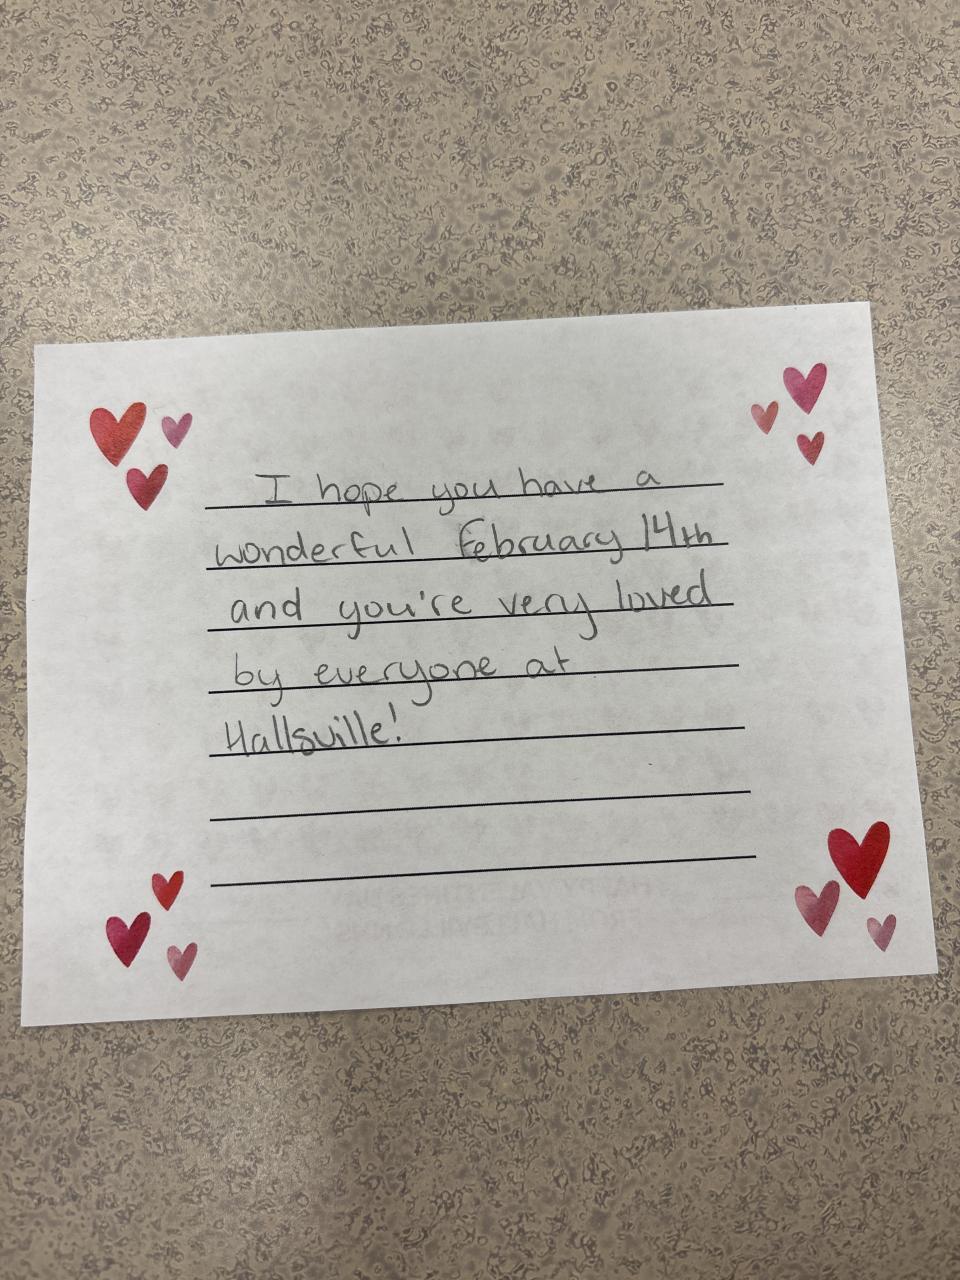 I hope you have a
wonderful February 14th
and you're very loved
by everyone at
Hallsville!